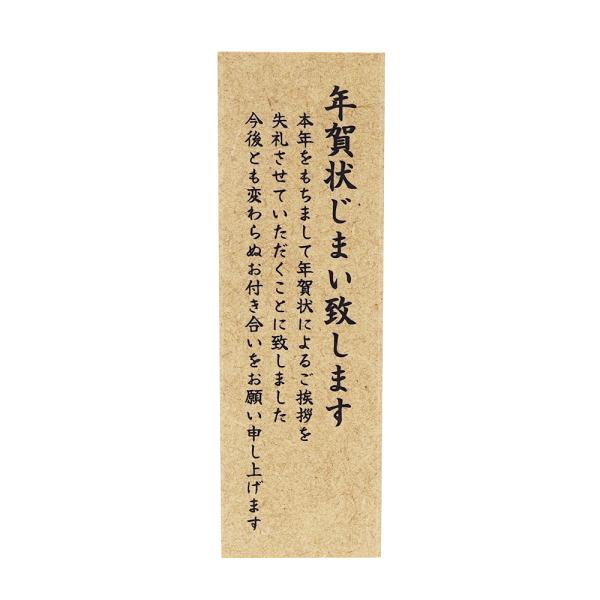 年賀状じまい致します
本年をもちまして年賀状によるご挨拶を
失礼させていただくことに致しました
今後とも変わらぬお付き合いをお願い申し上げます